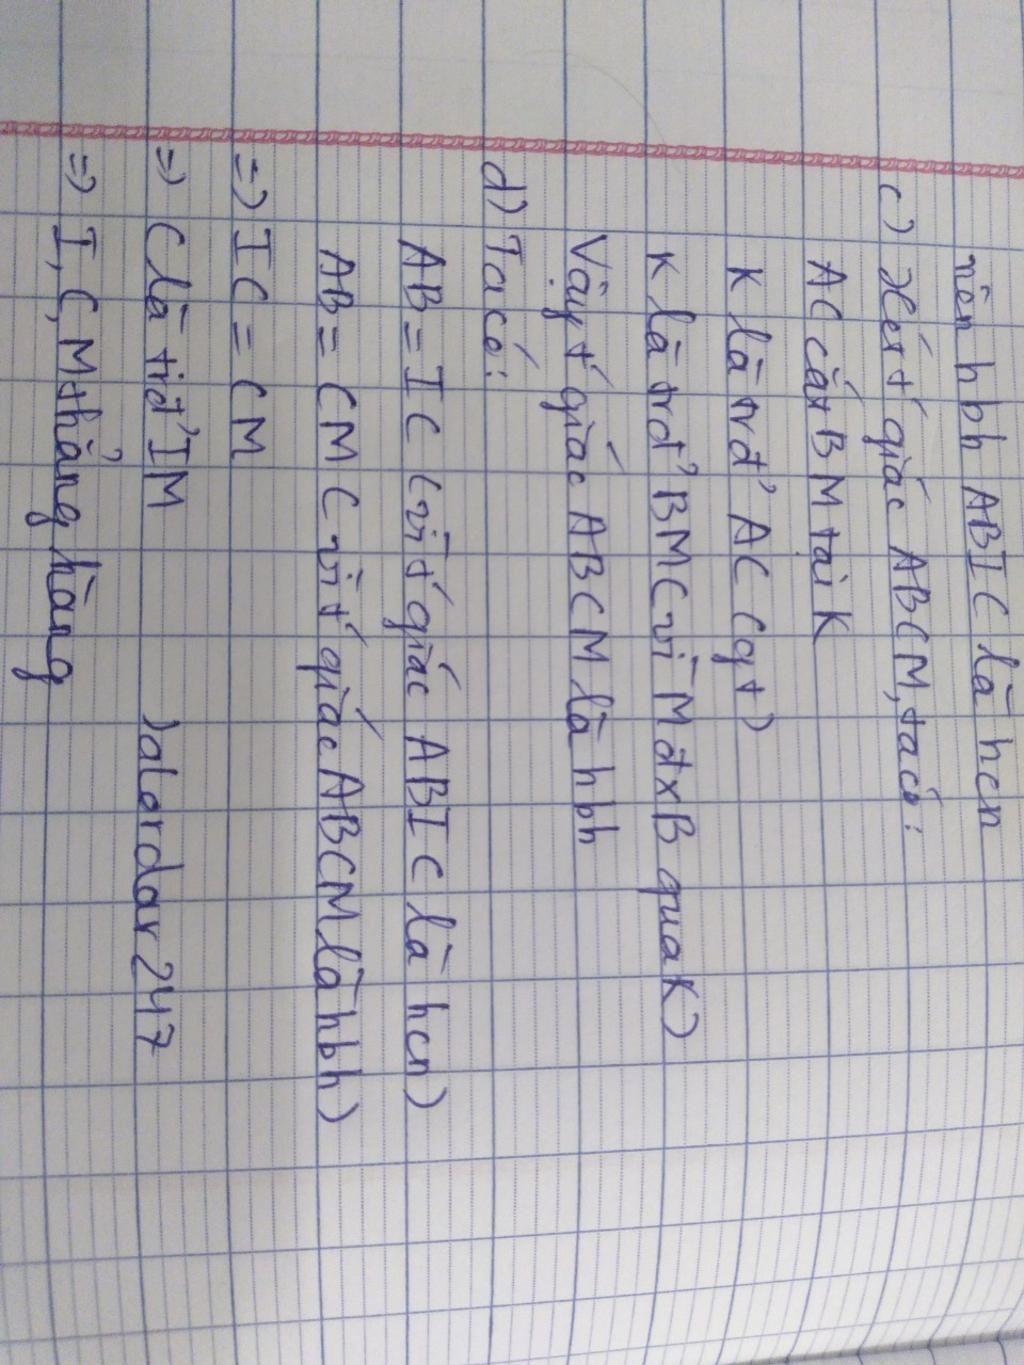 nên hbh ABIC là hcn
c) Xét t´giác ABCM, ta có:
AC cắt BM tại K
K là trđ' AC (gt)
K là trđ' BM (vì M đx B qua K)
Vậy t´giác ABCM là hbh
d) Ta có:
AB = IC (vì t´giác ABIC là hcn)
AB = CM (vì t´giác ABCM là hbh)
=> IC = CM
=> C là trđ' IM
=> I, C, M thẳng hàng